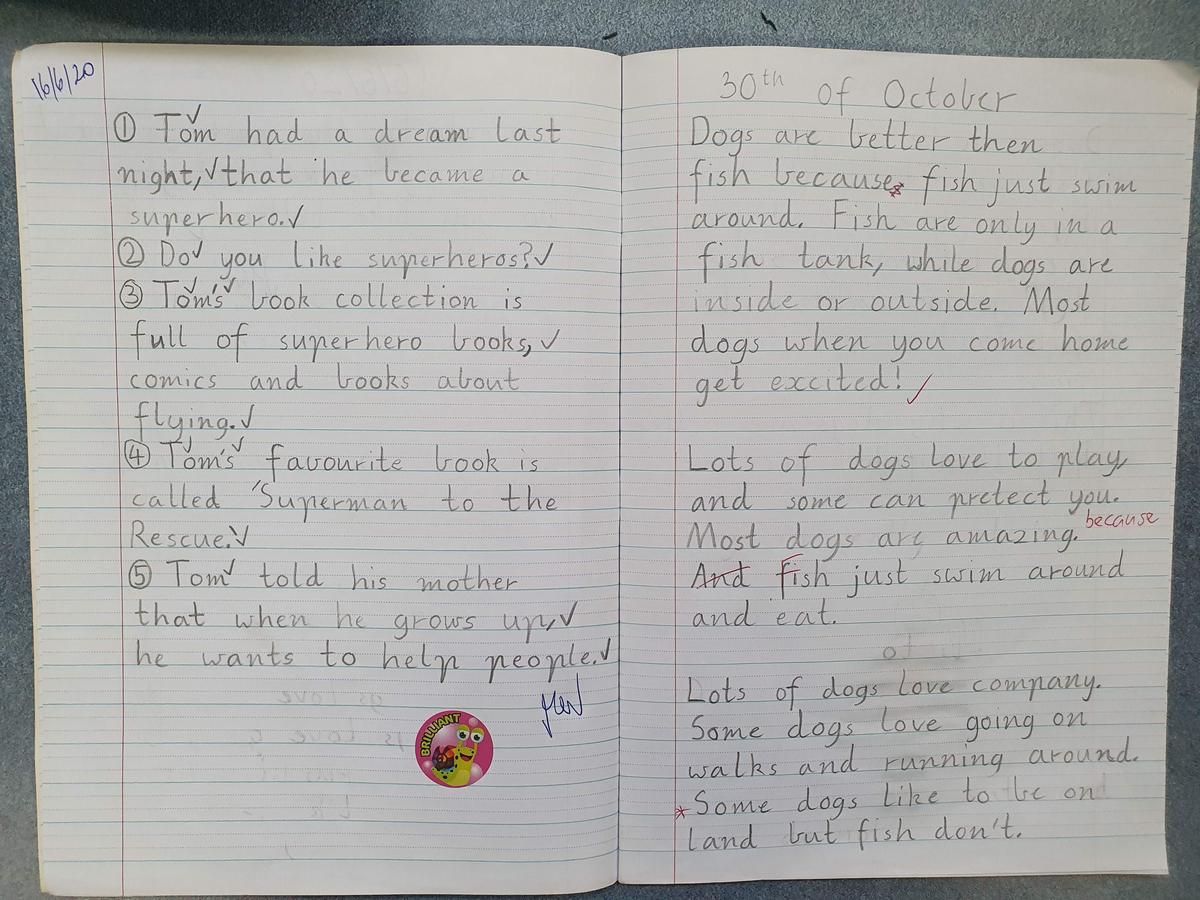 16/6/20
① Tom had a dream last
night, that he became a
superhero.
② Do you like superheros?
③ Tom's book collection is
full of superhero books,
comics and books about
flying.
④ Tom's favourite book is
called 'Superman to the
Rescue.
⑤ Tom told his mother
that when he grows up,
he wants to help people.
BRILLIANT
30th of October
Dogs are better then
fish because* fish just swim
around. Fish are only in a
fish tank, while dogs are
inside or outside. Most
dogs when you come home
get excited!
Lots of dogs love to play,
and some can pretect you.
Most dogs are amazing. because
And Fish just swim around
and eat.
Lots of dogs love company.
Some dogs love going on
walks and running around.
*Some dogs like to be on
land but fish don't.